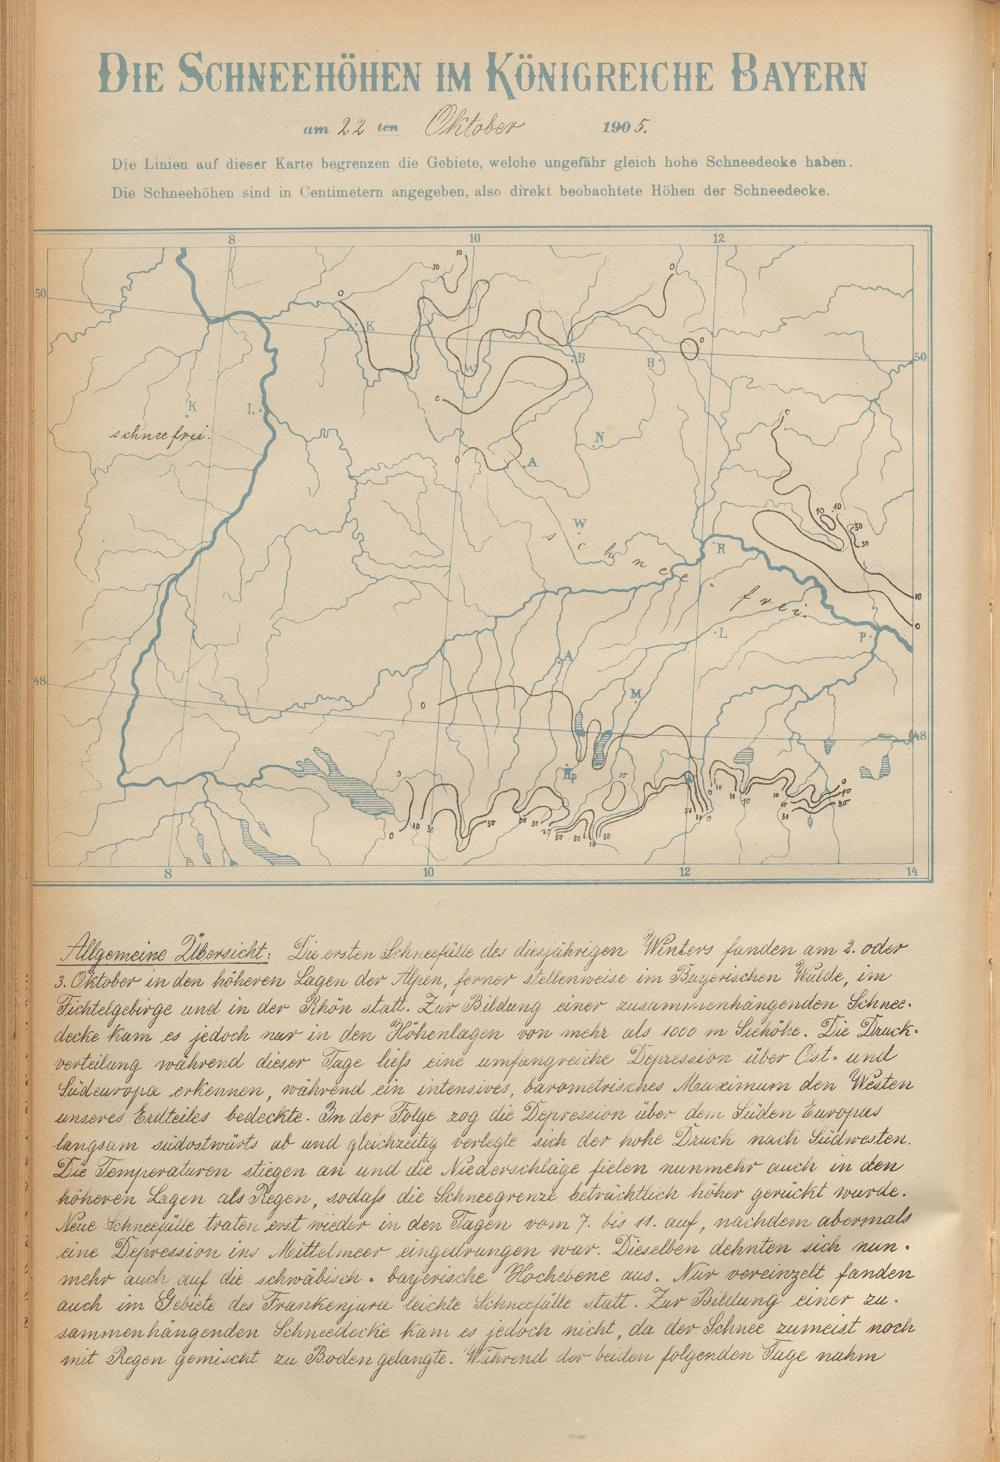 DIE SCHNEEHÖHEN IM KÖNIGREICHE BAYERN
am 22 ten Oktober 1905.
Die Linien auf dieser Karte begrenzen die Gebiete, welche ungefähr gleich hohe Schneedecke haben.
Die Schneehöhen sind in Centimetern angegeben, also direkt beobachtete Höhen der Schneedecke.
8 10 12
50
50
K
B
B
W
K
L
schneefrei.
N
A
W
schnee
R
frei.
L
P
A
48
M
48
Hp
8 10 12 14
Allgemeine Übersicht: Die ersten Schneefälle des diesjährigen Winters fanden am 2. oder
3. Oktober in den höheren Lagen der Alpen, ferner stellenweise im Bayerischen Walde, im
Fichtelgebirge und in der Rhön statt. Zur Bildung einer zusammenhängenden Schnee-
decke kam es jedoch nur in den Höhenlagen von mehr als 1000 m Seehöhe. Die Druck-
verteilung während dieser Tage ließ eine umfangreiche Depression über Ost- und
Südeuropa erkennen, während ein intensives, barometrisches Maximum den Westen
unseres Erdteiles bedeckte. In der Folge zog die Depression über dem Süden Europas
langsam südostwärts ab und gleichzeitig verlegte sich der hohe Druck nach Südwesten.
Die Temperaturen stiegen an und die Niederschläge fielen nunmehr auch in den
höheren Lagen als Regen, sodaß die Schneegrenze beträchtlich höher gerückt wurde.
Neue Schneefälle traten erst wieder in den Tagen vom 7. bis 11. auf, nachdem abermals
eine Depression ins Mittelmeer eingedrungen war. Dieselben dehnten sich nun-
mehr auch auf die schwäbisch-bayerische Hochebene aus. Nur vereinzelt fanden
auch im Gebiete des Frankenjura leichte Schneefälle statt. Zur Bildung einer zu-
sammenhängenden Schneedecke kam es jedoch nicht, da der Schnee zumeist noch
mit Regen gemischt zu Boden gelangte. Während der beiden folgenden Tage nahm